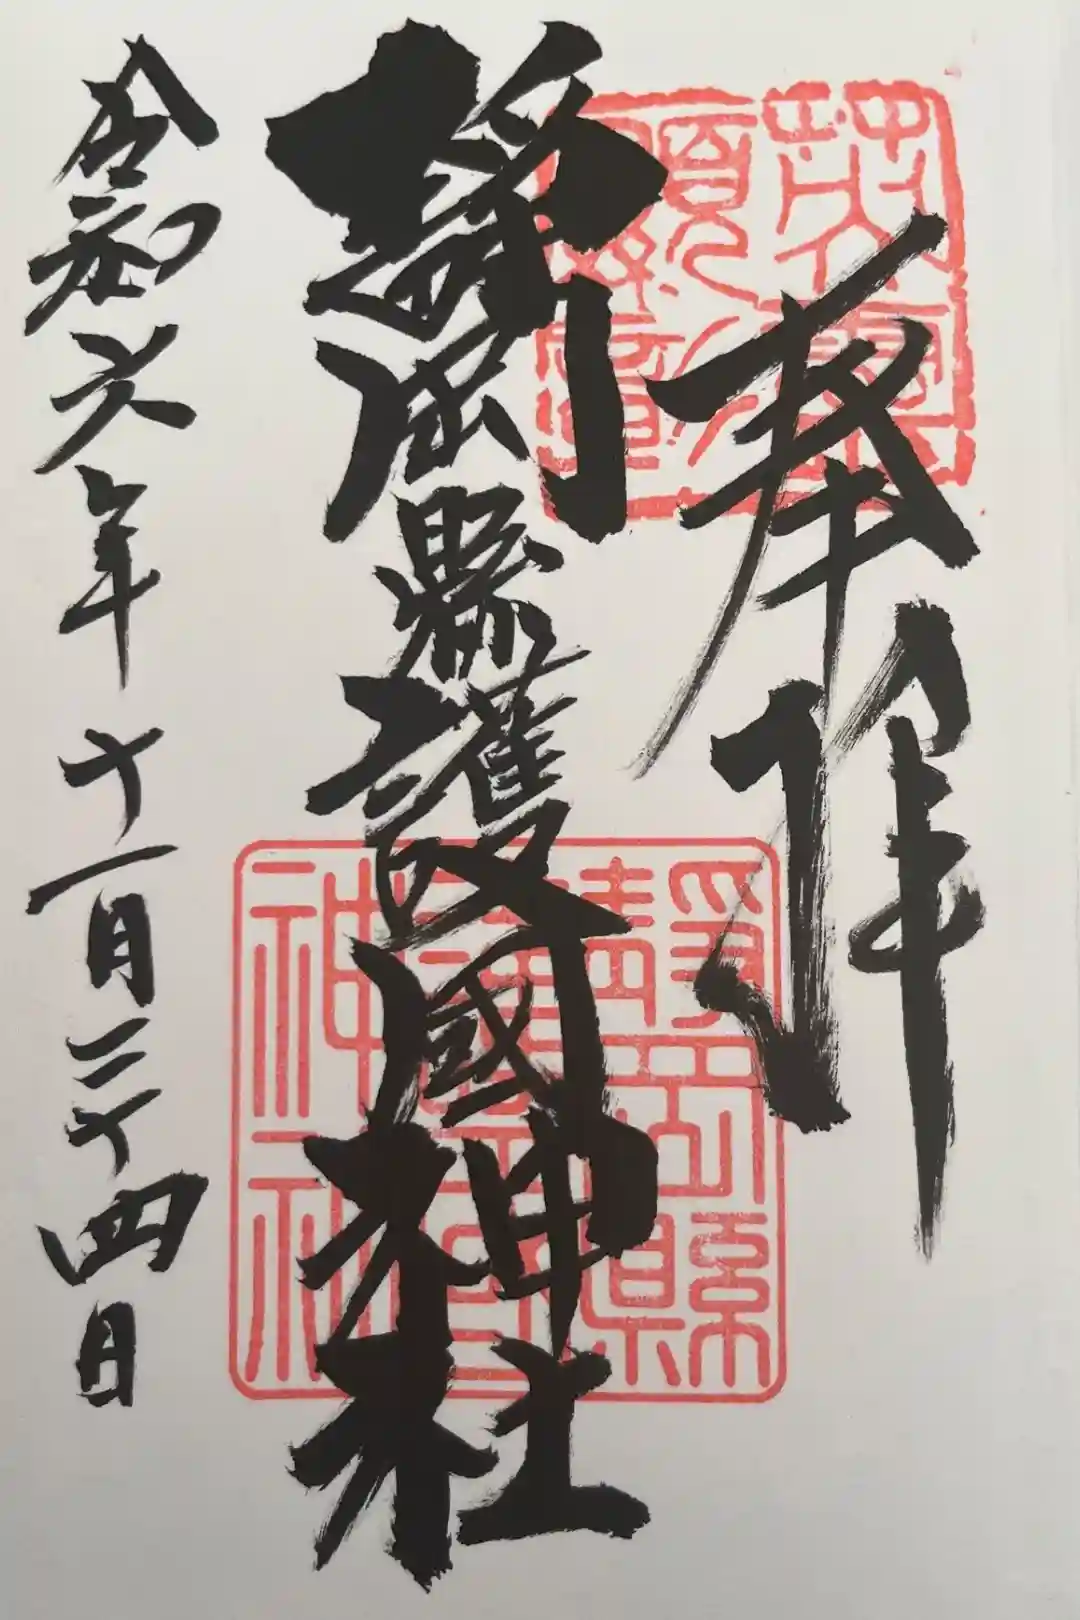 奉拝
靜岡縣護國神社
令和六年十一月二十四日
靜岡縣
護國
神社